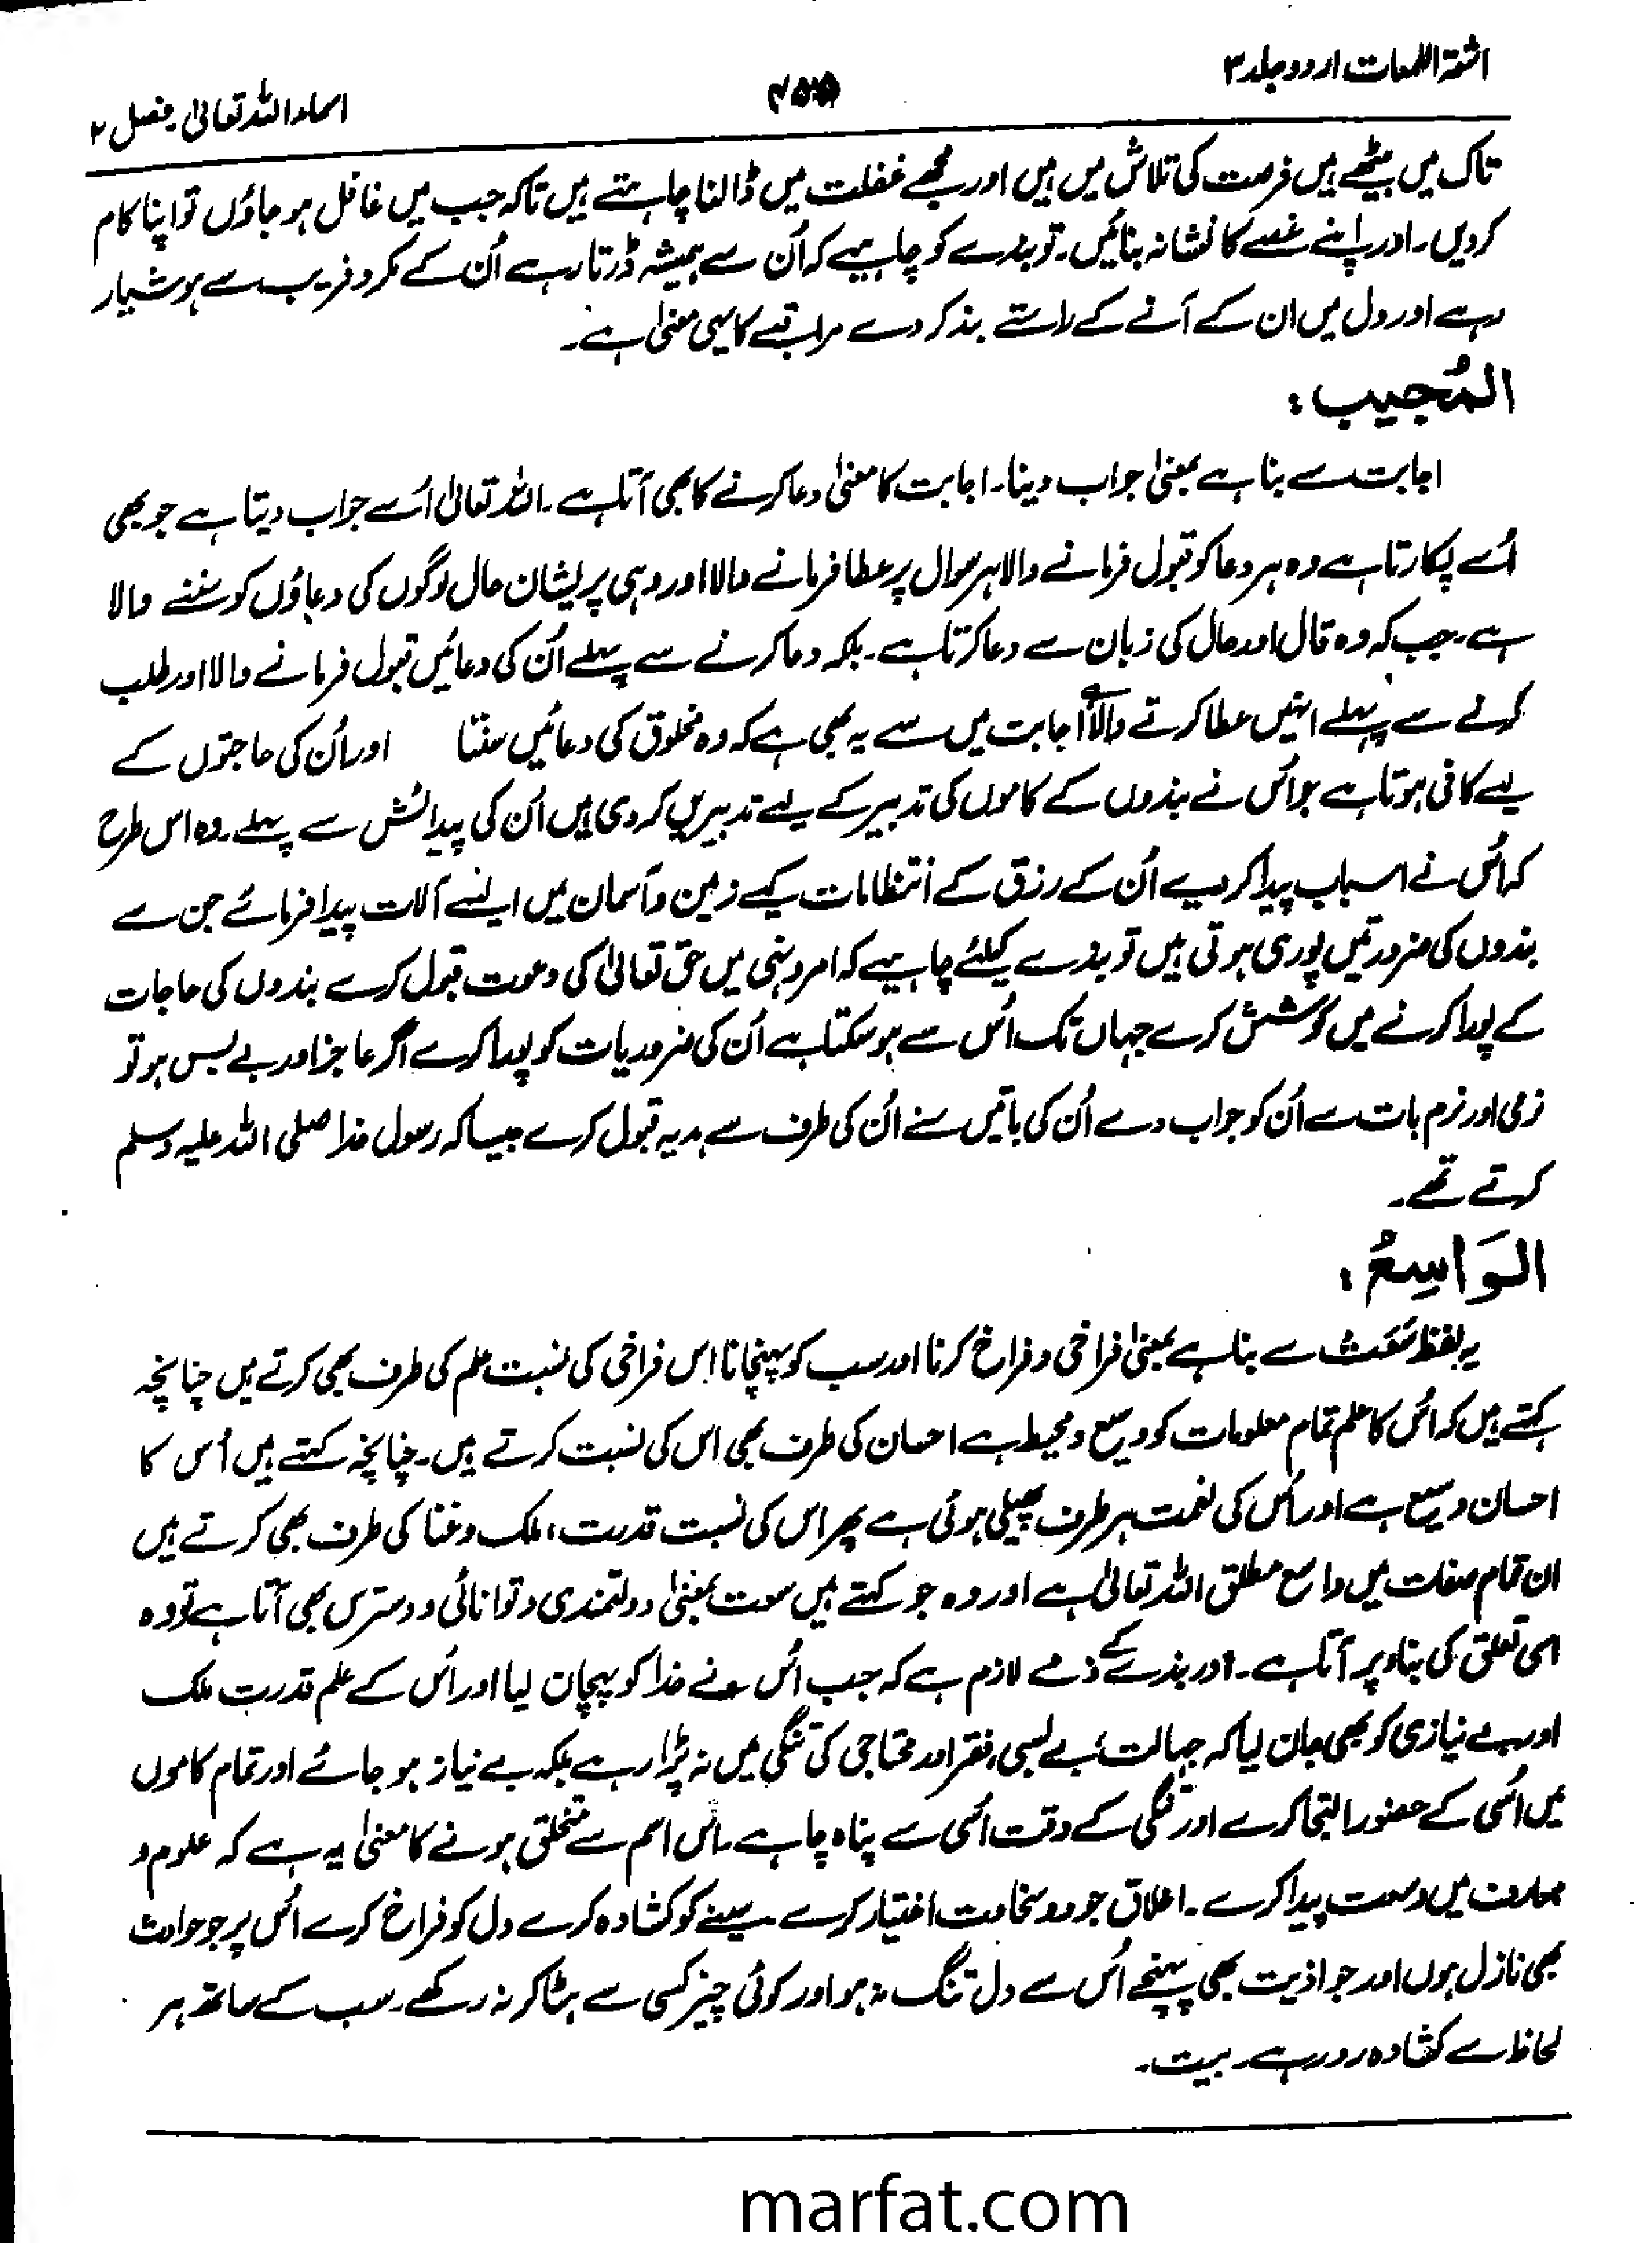 اشعۃ اللمعات اردو جلد ۳
اسماء اللہ تعالیٰ فصل ۲
تاک میں بیٹھے ہیں فرصت کی تلاش میں ہیں اور مجھے غفلت میں ڈالنا چاہتے ہیں تاکہ جب میں غافل ہو جاؤں تو اپنا کام
کر دیں۔ اور اپنے غصے کا نشانہ بنائیں۔ تو بندے کو چاہیے کہ اُن سے ہمیشہ ڈرتا رہے اُن کے مکر و فریب سے ہوشیار
رہے اور دل میں ان کے آنے کے راستے بند کر دے مراقبے کا یہی معنیٰ ہے۔
المُجیب:
اجابت سے بنا ہے بمعنیٰ جواب دینا۔ اجابت کا معنیٰ دعا کرنے کا بھی آتا ہے۔ اللہ تعالیٰ اُسے جواب دیتا ہے جو بھی
اُسے پکارتا ہے وہ ہر دعا کو قبول فرمانے والا ہر سوال پر عطا فرمانے والا اور وہی پریشان حال لوگوں کی دعاؤں کو سننے والا
ہے۔ جب کہ وہ قال اور حال کی زبان سے دعا کرتا ہے۔ بلکہ دعا کرنے سے پہلے اُن کی دعائیں قبول فرمانے والا اور طلب
کرنے سے پہلے انہیں عطا کرنے والا ہے اجابت میں سے یہ بھی ہے کہ وہ مخلوق کی دعائیں سنتا اور اُن کی حاجتوں کے
لیے کافی ہوتا ہے جو اُس نے بندوں کے کاموں کی تدبیر کے لیے تدبیریں کر دی ہیں اُن کی پیدائش سے پہلے۔ وہ اس طرح
کہ اُس نے اسباب پیدا کر دیے اُن کے رزق کے انتظامات کیے زمین و آسمان میں ایسے آلات پیدا فرمائے جن سے
بندوں کی ضرورتیں پوری ہوتی ہیں تو بندے کیلئے چاہیے کہ امر و نہی میں حق تعالیٰ کی دعوت قبول کرے بندوں کی حاجات
کے پورا کرنے میں کوشش کرے جہاں تک اُس سے ہو سکتا ہے اُن کی ضروریات کو پورا کرے اگر عاجز اور بے بس ہو تو
نرمی اور نرم بات سے اُن کو جواب دے اُن کی باتیں سنے اُن کی طرف سے ہدیہ قبول کرے جیسا کہ رسول خدا صلی اللہ علیہ وسلم
کرتے تھے۔
الوَاسِعُ:
یہ لفظ سَعَتٌ سے بنا ہے بمعنیٰ فراخی و فراخ کرنا اور سب کو پہنچانا اس فراخی کی نسبت علم کی طرف بھی کرتے ہیں چنانچہ
کہتے ہیں کہ اُس کا علم تمام معلومات کو وسیع و محیط ہے احسان کی طرف بھی اس کی نسبت کرتے ہیں۔ چنانچہ کہتے ہیں اُس کا
احسان وسیع ہے اور اُس کی نعمت ہر طرف پھیلی ہوئی ہے پھر اس کی نسبت قدرت، ملک و غنا کی طرف بھی کرتے ہیں
ان تمام صفات میں واسع مطلق اللہ تعالیٰ ہے اور وہ جو کہتے ہیں سعت بمعنیٰ دولتمندی و توانائی و دسترس بھی آتا ہے تو وہ
اسی تعلق کی بناء پر آتا ہے۔ اور بندے کے ذمے لازم ہے کہ جب اُس نے خدا کو پہچان لیا اور اُس کے علم قدرت ملک
اور بے نیازی کو بھی جان لیا کہ جہالت، بے بسی، فقر اور محتاجی کی تنگی میں نہ پڑا رہے بلکہ بے نیاز ہو جائے اور تمام کاموں
میں اُسی کے حضور التجا کرے اور تنگی کے وقت اُسی سے پناہ چاہے۔ اس اسم سے متخلق ہونے کا معنیٰ یہ ہے کہ علوم و
معارف میں وسعت پیدا کرے۔ اخلاق جود و سخاوت اختیار کرے سینے کو کشادہ کرے دل کو فراخ کرے اُس پر جو حوادث
بھی نازل ہوں اور جو اذیت بھی پہنچے اُس سے دل تنگ نہ ہو اور کوئی چیز کسی سے ہٹا کر نہ رکھے۔ سب کے ساتھ ہر
لحاظ سے کشادہ رو رہے۔ بیت۔
marfat.com